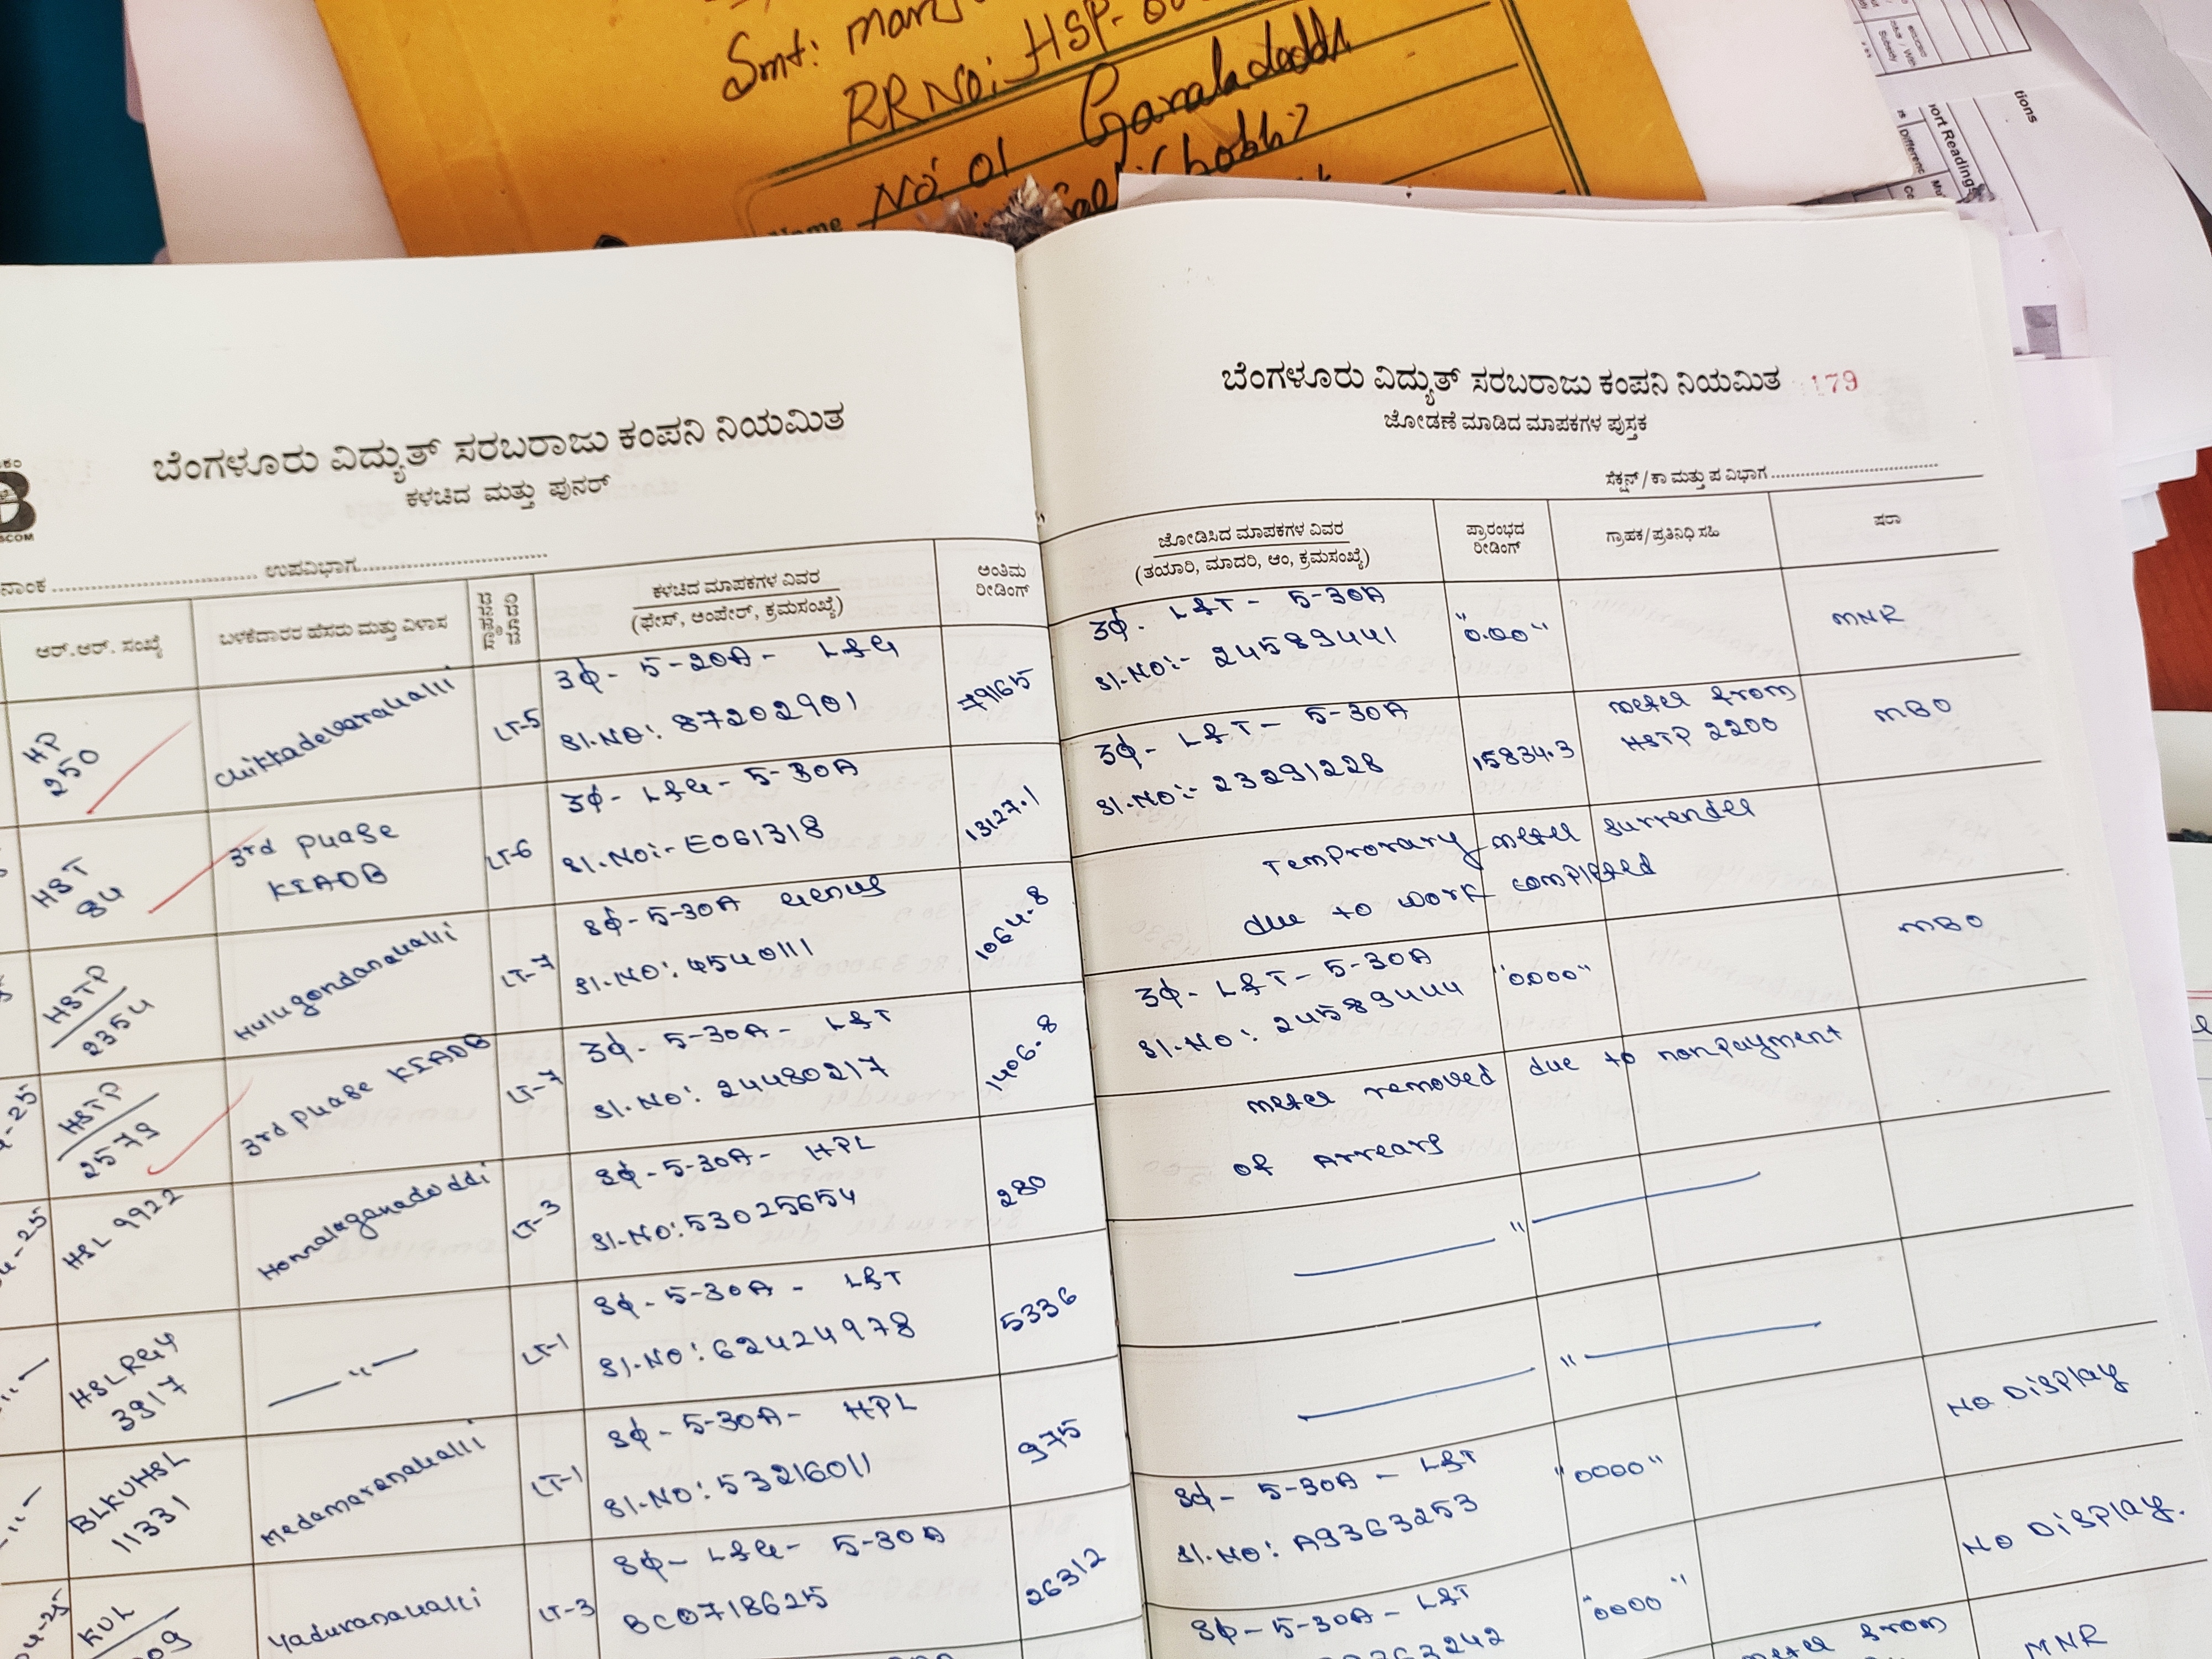 Smt:
RR NO: HSP-
No 01 Garaladoddi
Name
ort Reading
tions
ಬೆಂಗಳೂರು ವಿದ್ಯುತ್ ಸರಬರಾಜು ಕಂಪನಿ ನಿಯಮಿತ
ಕಳಚಿದ ಮತ್ತು ಪುನರ್
ಉಪವಿಭಾಗ
ಆರ್.ಆರ್. ಸಂಖ್ಯೆ
ಬಳಕೆದಾರರ ಹೆಸರು ಮತ್ತು ವಿಳಾಸ
ಕಳಚಿದ ಮಾಪಕಗಳ ವಿವರ
(ಫೇಸ್, ಆಂಪೇರ್, ಕ್ರಮಸಂಖ್ಯೆ)
ಅಂತಿಮ
ರೀಡಿಂಗ್
HP
250
Chikkadevarahalli
LT-5
3ф- 5-20A- L&G
Sl.NO: 87202901
79165
HST
84
3rd phase
KIADB
LT-6
3ф- L&G- 5-30A
Sl.No:- E061318
13127.1
HSTP
2354
Hulugondanahalli
LT-7
Sф-5-30A Genus
Sl.NO: 4540111
1064.8
HSTP
2579
3rd phase KIADB
LT-7
3ф- 5-30A- L&T
Sl.No: 24480217
1406.8
HSL 9922
Honnalaganadoddi
LT-3
Sф-5-30A- HPL
Sl.NO: 53025654
280
HSLRGY
3917
— " —
LT-1
Sф- 5-30A - L&T
Sl.NO: 62424978
5336
BLKVHSL
11331
Medamaranahalli
LT-1
Sф-5-30A- HPL
Sl.NO: 53216011
975
KVL
Yaduranahalli
LT-3
Sф- L&G- 5-30A
BC0718625
26312
ಬೆಂಗಳೂರು ವಿದ್ಯುತ್ ಸರಬರಾಜು ಕಂಪನಿ ನಿಯಮಿತ 179
ಜೋಡಣೆ ಮಾಡಿದ ಮಾಪಕಗಳ ಪುಸ್ತಕ
ಸೆಕ್ಷನ್ / ಕಾ ಮತ್ತು ಪ ವಿಭಾಗ
ಜೋಡಿಸಿದ ಮಾಪಕಗಳ ವಿವರ
(ತಯಾರಿ, ಮಾದರಿ, ಆಂ, ಕ್ರಮಸಂಖ್ಯೆ)
ಪ್ರಾರಂಭದ
ರೀಡಿಂಗ್
ಗ್ರಾಹಕ/ಪ್ರತಿನಿಧಿ ಸಹಿ
ಷರಾ
3ф. L&T- 5-30A
Sl.NO:- 24589441
"0.00"
MNR
3ф- L&T- 5-30A
Sl.NO:- 23291228
15834.3
meter from
HSTP 2200
MBO
Temprorary meter surrender
due to work completed
3ф- L&T-5-30A
Sl.NO: 24589444
"0000"
MBO
meter removed due to nonpayment
of Arrears
— " —
— " —
Sф- 5-30A - L&T
Sl.NO: A9363253
"0000"
NO Display
Sф-5-30A- L&T
"0000"
NO Display.
meter from
MNR